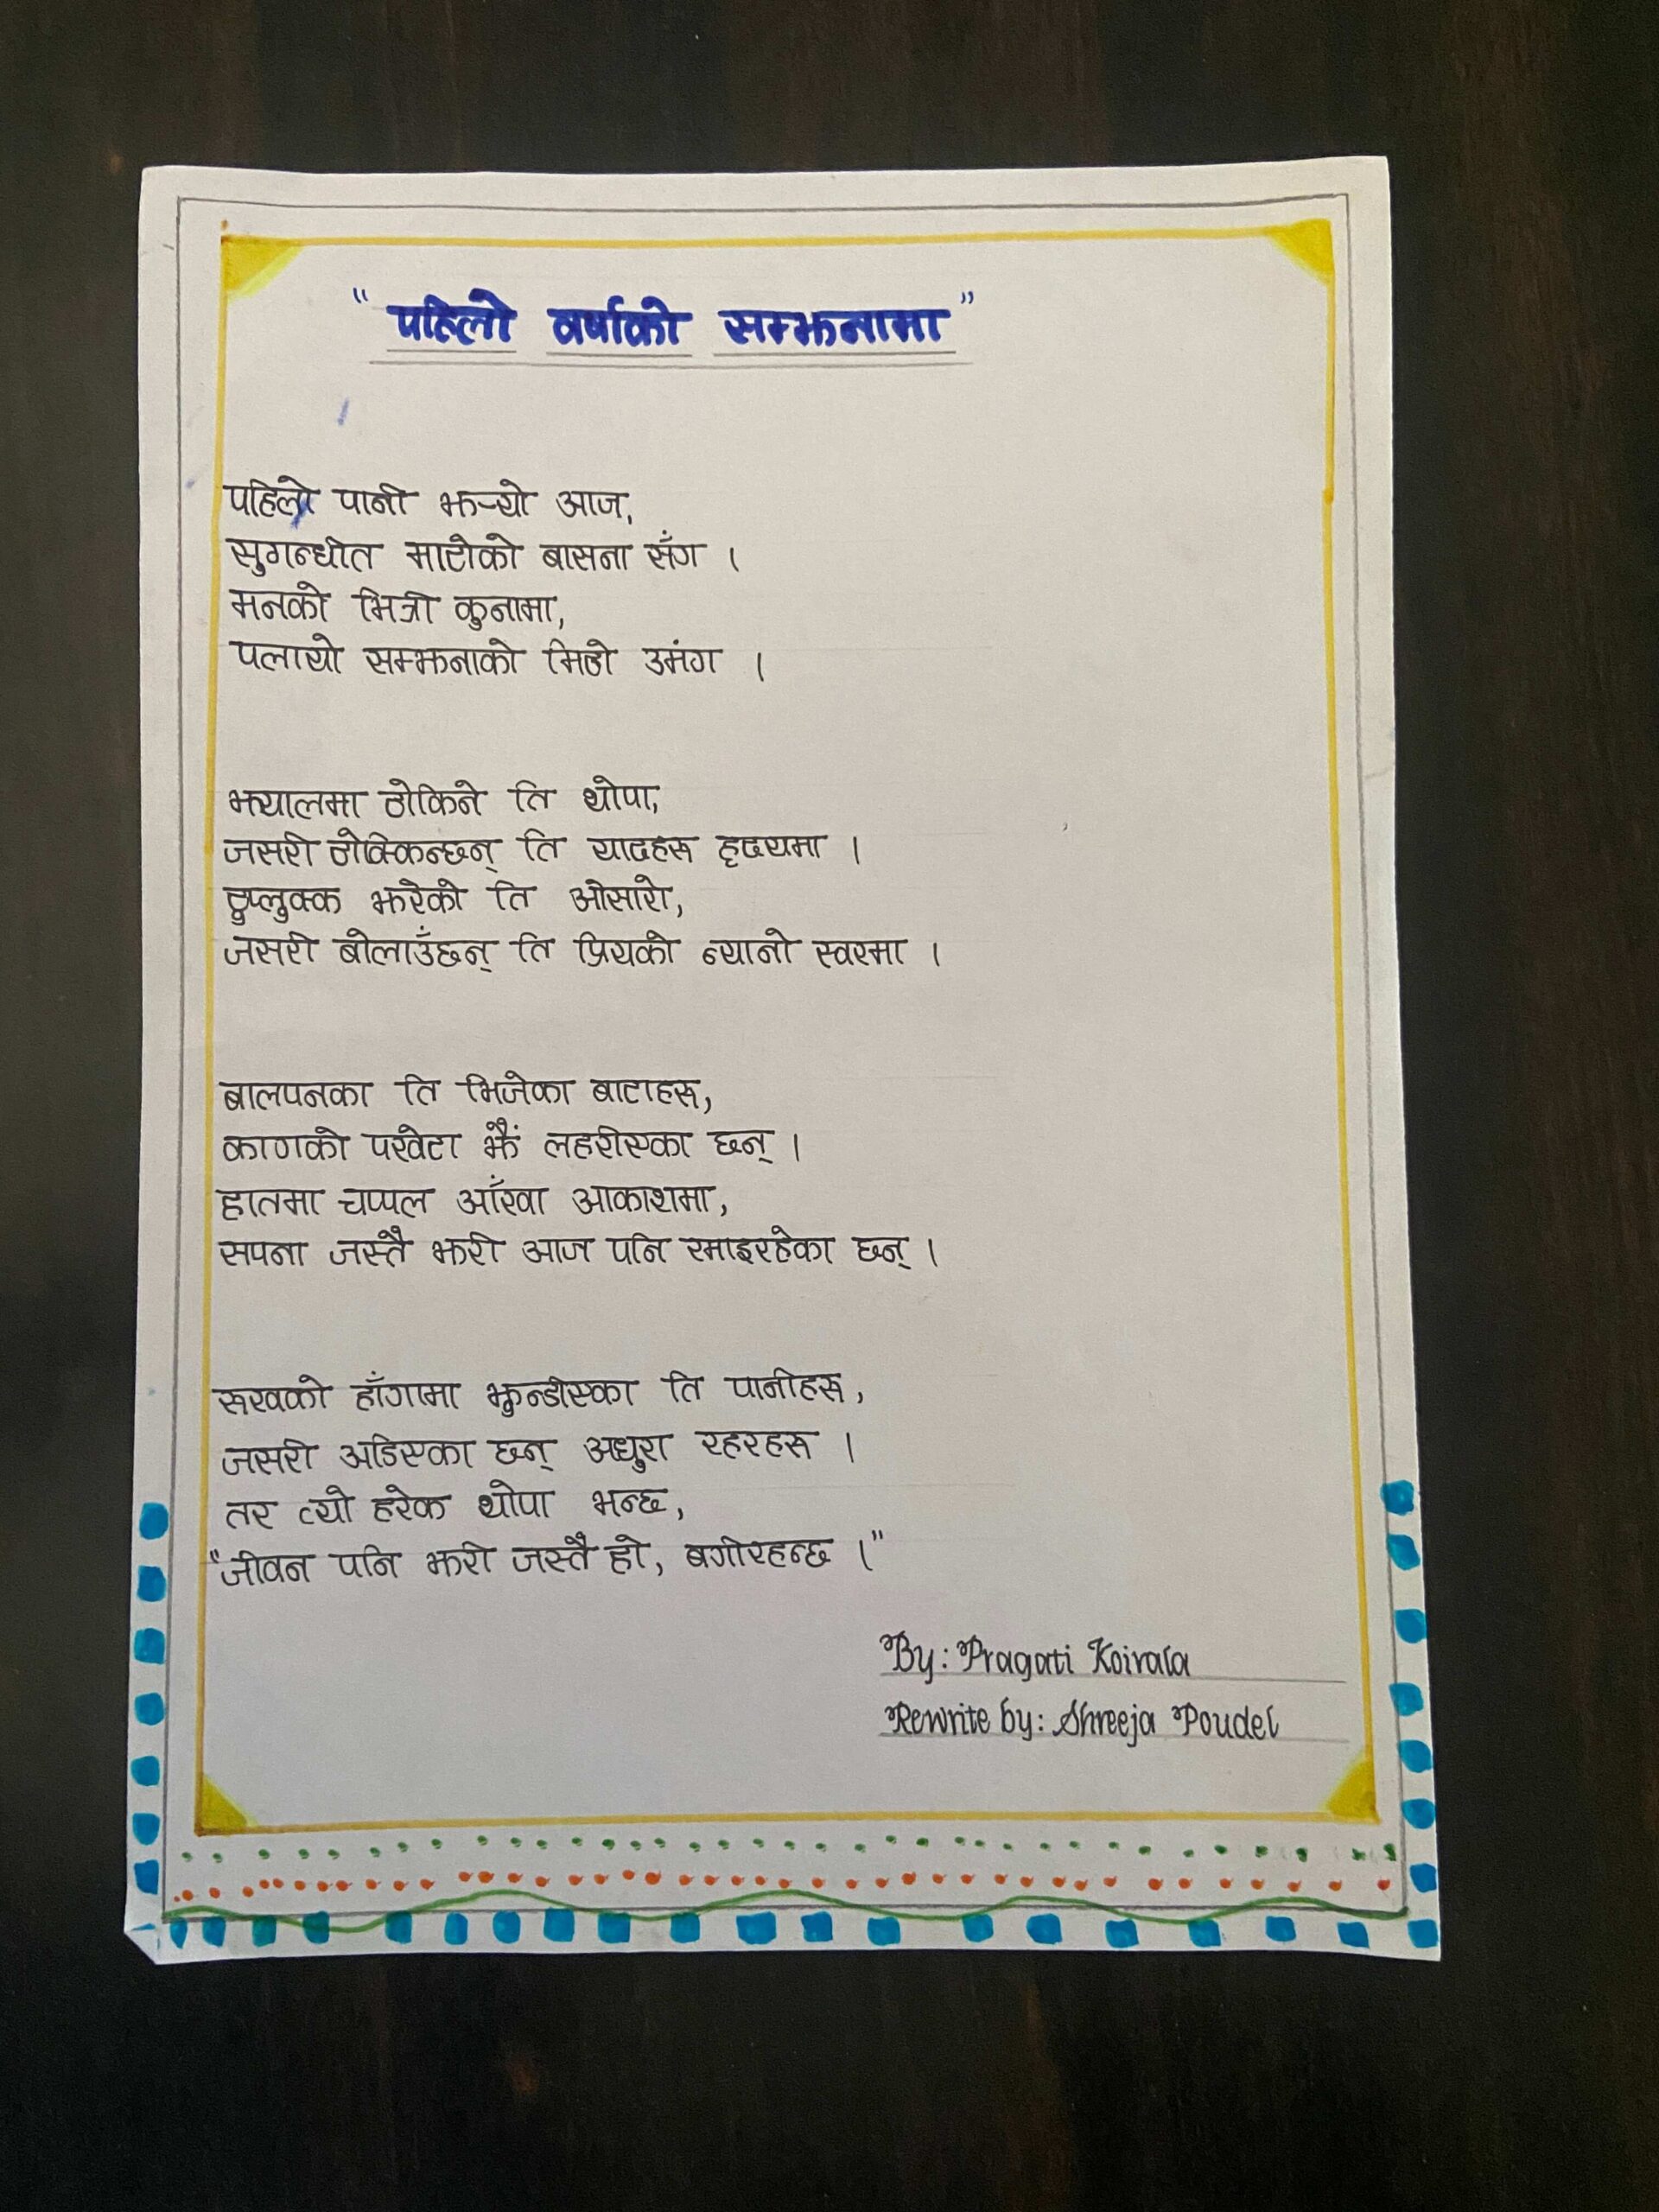 " पहिलो वर्षाको सम्झनामा "
पहिलो पानी झर्‍यो आज,
सुगन्धीत माटोको बासना सँग ।
मनको भित्री कुनामा,
पलायो सम्झनाको मिठो उमंग ।
झ्यालमा ठोकिने ति थोपा,
जसरी ठोक्किन्छन् ति यादहरू हृदयमा ।
टुप्लुक्क झरेको ति ओसारो,
जसरी बोलाउँछन् ति प्रियको न्यानो स्वरमा ।
बालपनका ति भिजेका बाटाहरू,
कागको पखेटा झैं लहरीएका छन् ।
हातमा चप्पल आँखा आकाशमा,
सपना जस्तै झरी आज पनि रमाइरहेका छन् ।
रूखको हाँगामा झुन्डीएका ति पानीहरू,
जसरी अडिएका छन् अधुरा रहरहरू ।
तर त्यो हरेक थोपा भन्छ,
"जीवन पनि झरी जस्तै हो, बगीरहन्छ ।"
By: Pragati Koirala
Rewrite by: Shreeja Poudel